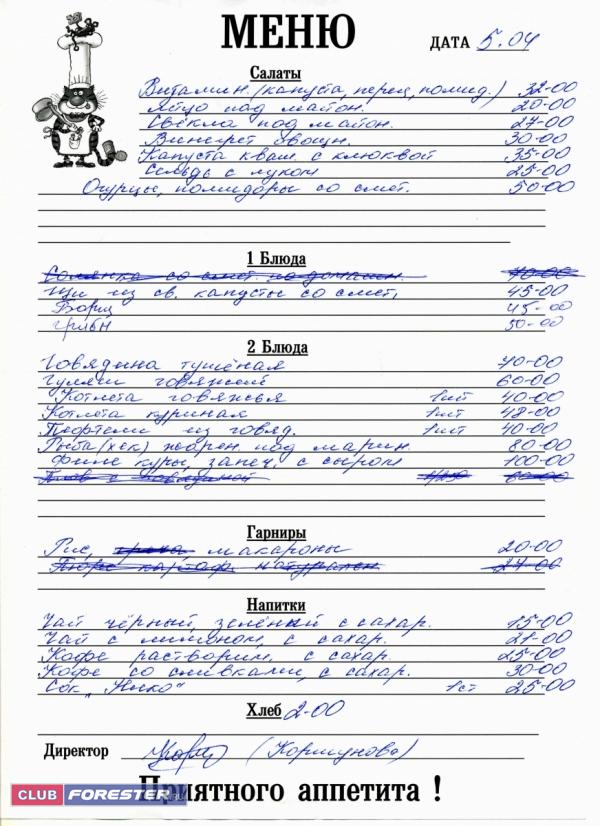 МЕНЮ
ДАТА 5.04
Салаты
Витамин. (капуста, перец, помид.) 32-00
Яйцо под майон. 20-00
Свекла под майон. 27-00
Винегрет овощн. 30-00
Капуста кваш. с клюквой 35-00
Сельдь с луком 25-00
Огурцы, помидоры со смет. 50-00
1 Блюда
Солянка со смет. по домашн. 70-00
Щи из св. капусты со смет, 45-00
Борщ 45-00
50-00
2 Блюда
Говядина тушёная 70-00
Гуляш говяжий 60-00
Котлета говяжья 1шт 40-00
Котлета куриная 1шт 48-00
Тефтели из говяд. 1шт 40-00
Рыба (хек) жарен. под марин. 80-00
Филе куры, запеч. с сыром 100-00
Плов с говядиной 60-00
Гарниры
Рис, греча, макароны 20-00
Пюре картоф. натурален 27-00
Напитки
Чай чёрный, зелёный с сахар. 15-00
Чай с лимоном, с сахар. 21-00
Кофе растворим. с сахар. 25-00
Кофе со сливками, с сахар. 30-00
Сок "Нико" 1ст 25-00
Хлеб 2-00
Директор (Коршунова)
Приятного аппетита !
CLUB FORESTER.ru